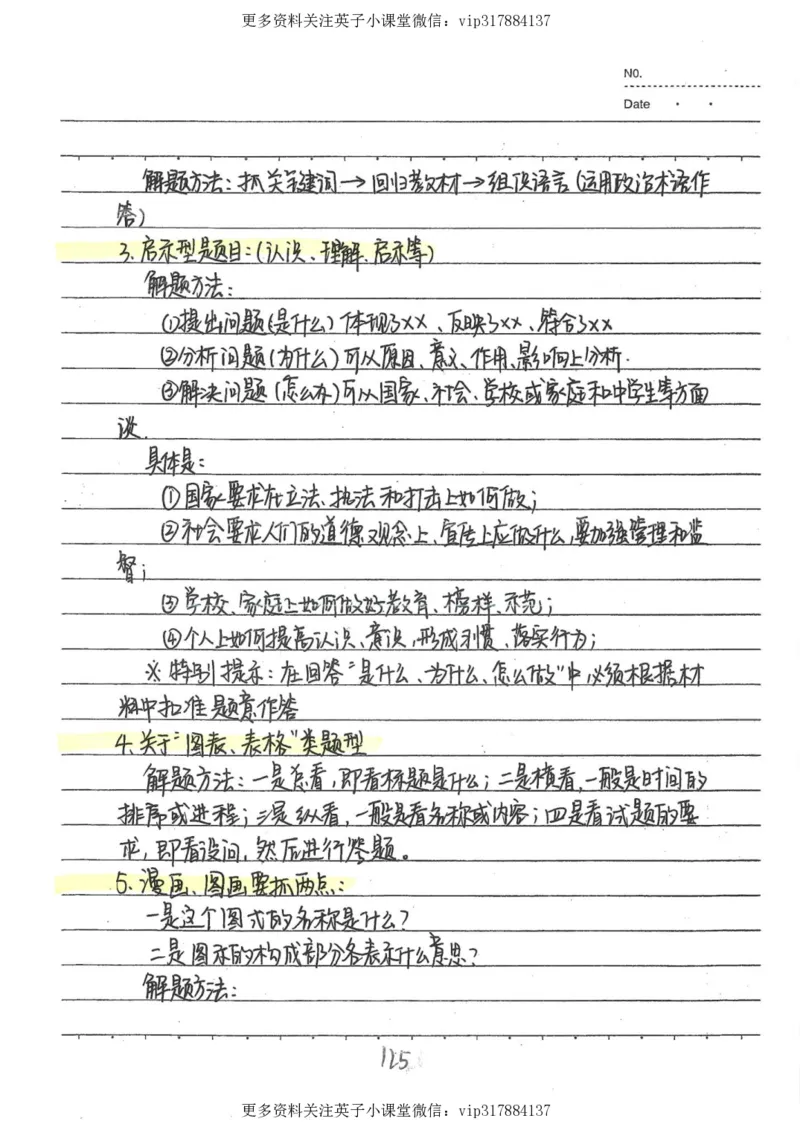 更多资料关注英子小课堂微信：vip317884137
NO.
Date
解题方法：抓关键词→回归教材→组织语言（运用政治术语作
答）
3.启示型题目：（认识、理解、启示等）
解题方法：
①提出问题（是什么）体现了××、反映了××、符合了××
②分析问题（为什么）可从原因、意义、作用、影响上分析.
③解决问题（怎么办）可从国家、社会、学校或家庭和中学生等方面
谈.
具体是：
①国家要求在立法、执法和打击上如何做；
②社会要求人们的道德观念上、宣传上应做什么，要加强管理和监
督；
③学校、家庭上如何做好教育、榜样、示范；
④个人上如何提高认识、意识，形成习惯、落实行为；
※特别提示：在回答“是什么、为什么、怎么做”中必须根据材
料中扣准题意作答
4.关于“图表、表格”类题型
解题方法：一是总看，即看标题是什么；二是横看，一般是时间的
排序或进程；三是纵看，一般是看名称或内容；四是看试题的要
求，即看设问，然后进行答题。
5.漫画、图画要抓两点：
一是这个图式的名称是什么？
二是图示的构成部分各表示什么意思？
解题方法：
125
更多资料关注英子小课堂微信：vip317884137